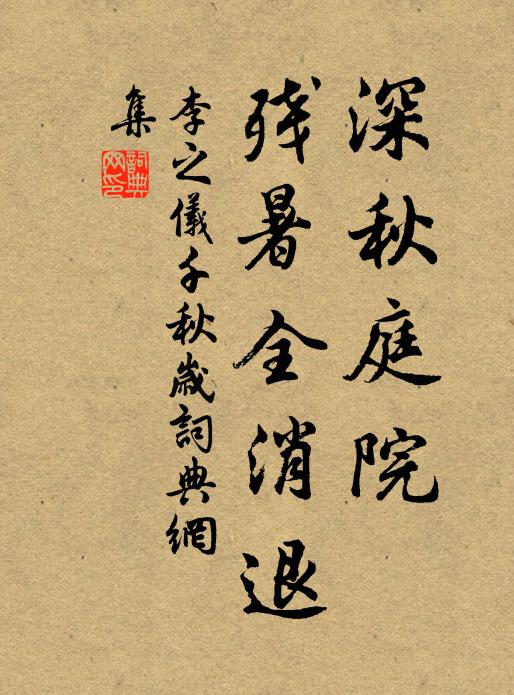 深秋庭院
残暑全消退
李之儀千秋歲詞典網
集
詞典網印